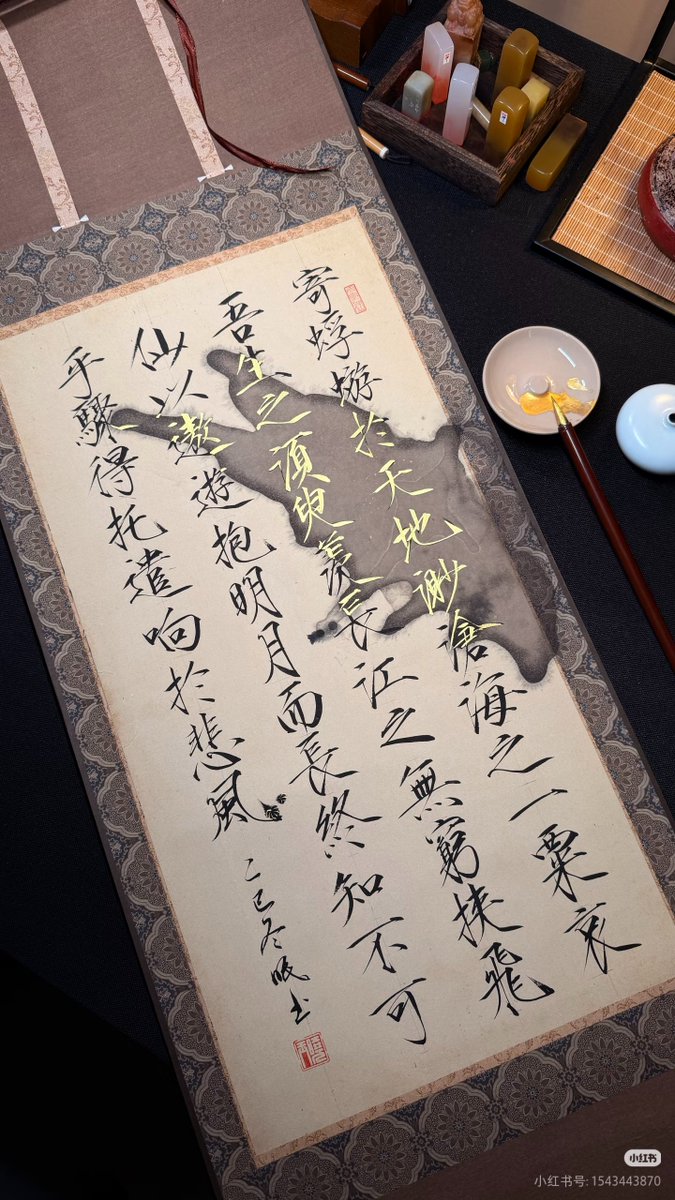 寄蜉蝣於天地渺滄海之一粟哀
吾生之須臾羨長江之無窮挾飛
仙以遨遊抱明月而長終知不可
乎驟得托遺响於悲風
乙巳冬
小红书
小红书号: 1543443870